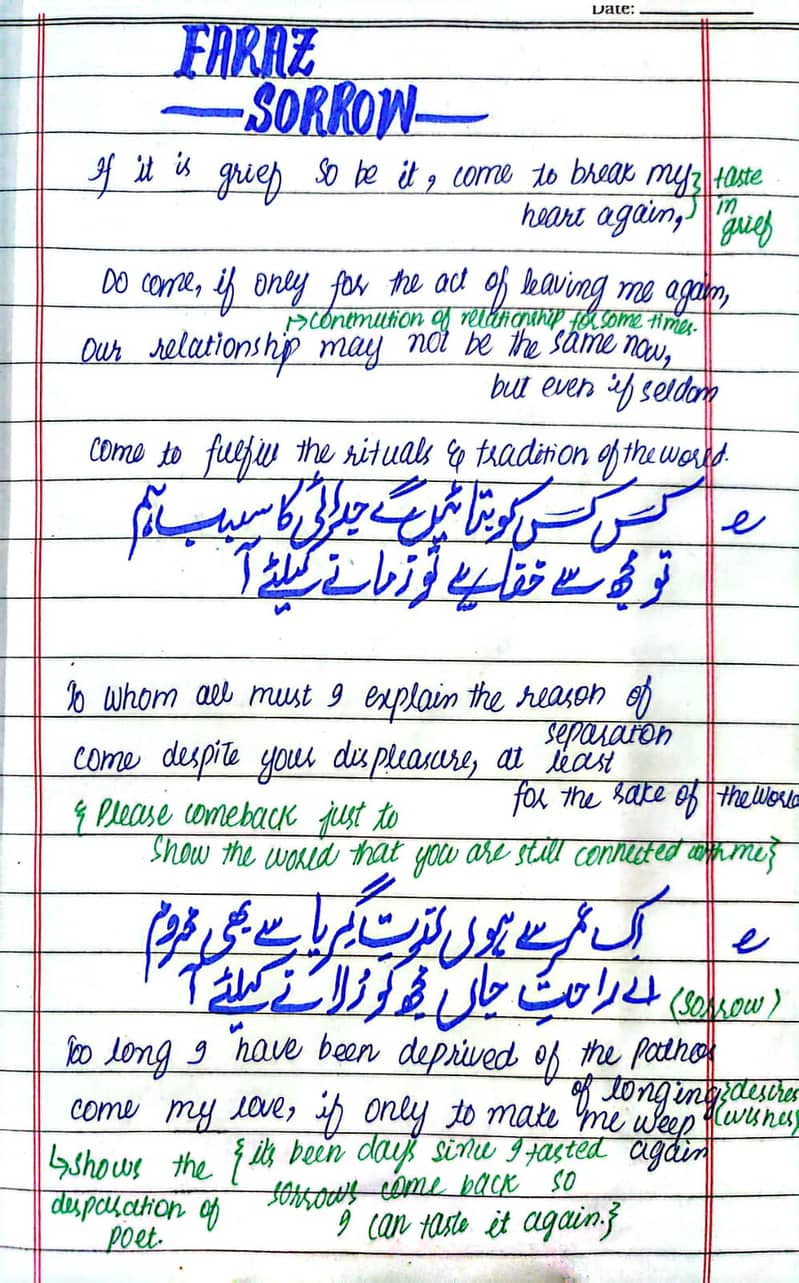 Date:
FARAZ
SORROW
If it is grief so be it, come to break my } taste
heart again, } in
grief
Do come, if only for the act of leaving me again,
↳ continution of relationship for some times.
Our relationship may not be the same now,
but even if seldom
come to fulfill the rituals & tradition of the world.
کس کس کو بتائیں گے جدائی کا سبب ہم
تو مجھ سے خفا ہے تو زمانے کیلئے آ
To whom all must I explain the reason of
separaton
come despite your displeasure, at least
for the sake of the world
{ Please comeback just to
show the world that you are still connected with me }
اک عمر سے ہوں لذتِ گریا سے بھی محروم
اے راحتِ جاں مجھ کو رُلانے کیلئے آ (sorrow)
Too long I have been deprived of the pathos
of longing } desires
come my love, if only to make me weep (wishes)
again
↳ shows the { its been days since I tasted
desparation of sorrows come back so
poet. I can taste it again. }